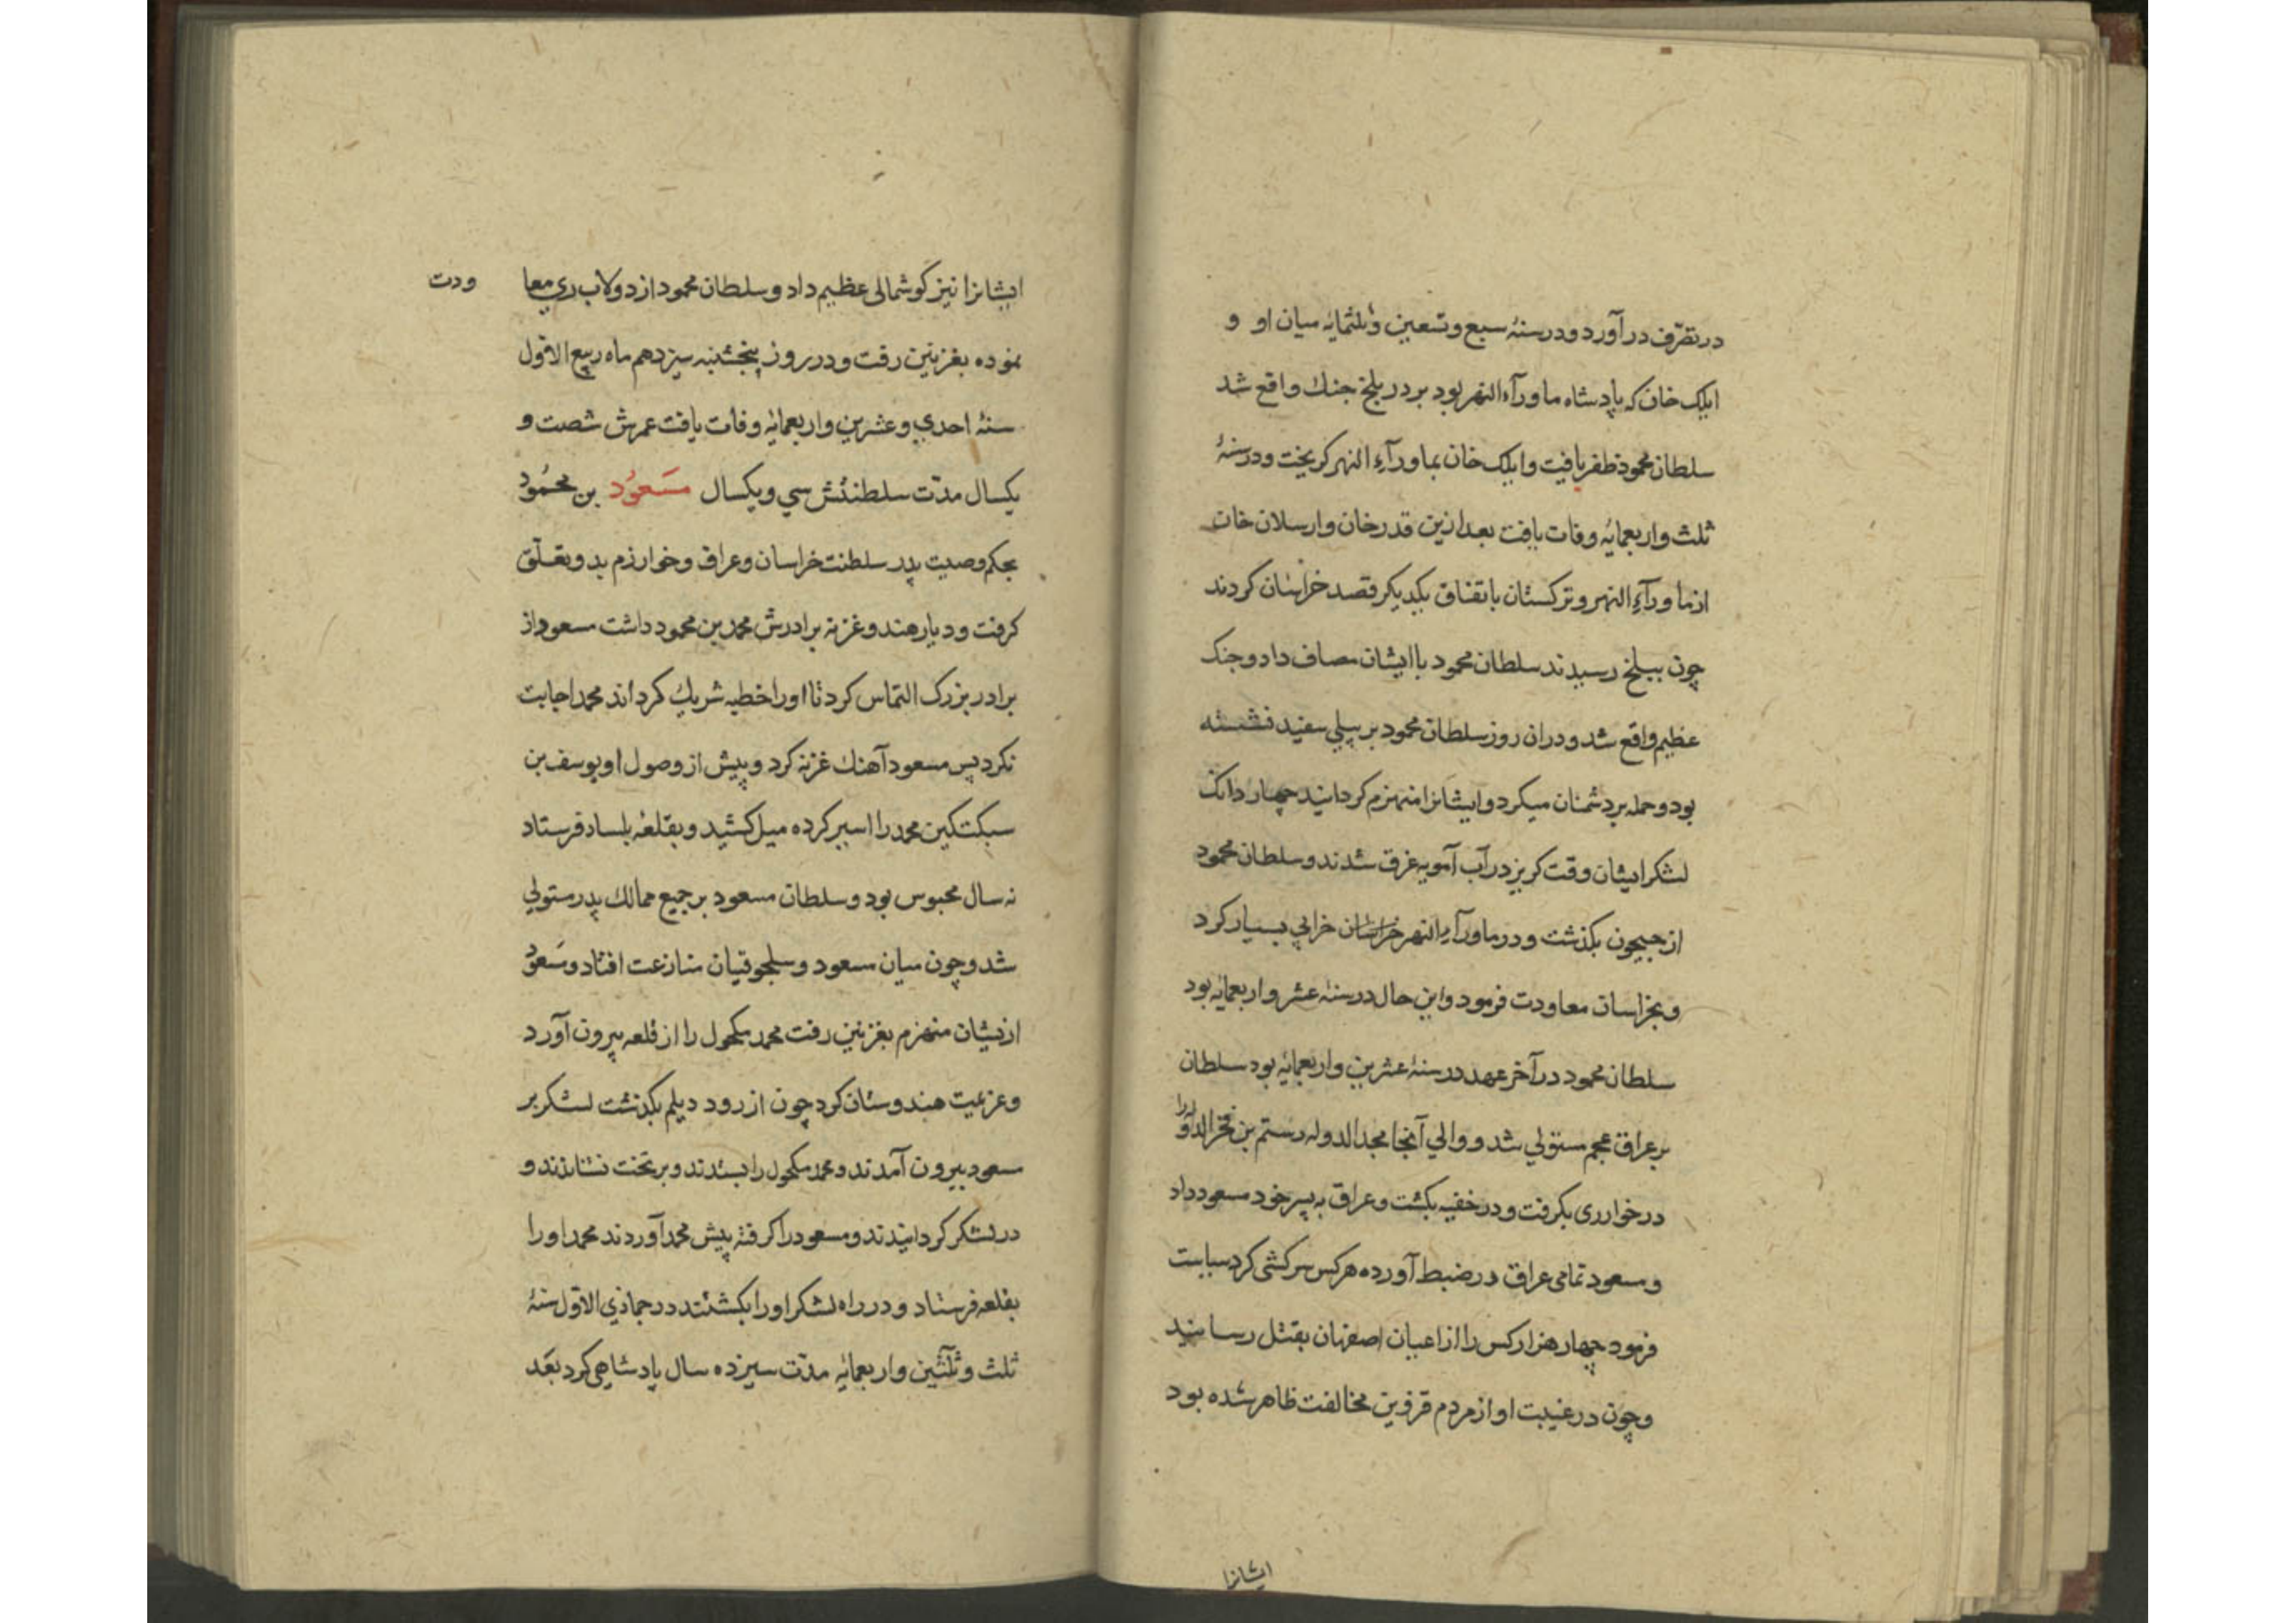 در تصرّف درآورد و در سنهٔ سبع و تسعین و ثلثمایه میان او و
ایلک خان که پادشاه ماورآء النهر بود بر در بلخ جنک واقع شد
سلطان محمود ظفر یافت و ایلک خان بماورآء النهر کریخت و در سنهٔ
ثلث و اربعمایه وفات یافت بعد ازین قدر خان و ارسلان خان
از ماورآء النهر و ترکستان باتفاق یکدیکر قصد خراسان کردند
چون ببلخ رسیدند سلطان محمود با ایشان مصاف داد و جنک
عظیم واقع شد و دران روز سلطان محمود بر پیلی سفید نشسته
بود و حمله بر دشمنان میکرد و ایشانرا منهزم کردانید چهار دانک
لشکر ایشان وقت کریز در آب آمویه غرق شدند و سلطان محمود
از جیحون بکذشت و در ماورآء النهر خراسان خرابی بسیار کرد
و بخراسان معاودت فرمود و این حال در سنهٔ عشر و اربعمایه بود
سلطان محمود در آخر عهد در سنهٔ عشرین و اربعمایه بود سلطان
بر عراق عجم مستولی شد و والی آنجا مجد الدوله رستم بن فخر الدوله را
در خوار ری بکرفت و در خفیه بکشت و عراق به پسر خود مسعود داد
و مسعود تمامی عراق در ضبط آورده هر کس سرکشی کرد سیاست
فرمود چهار هزار کس را از اعیان اصفهان بقتل رسانید
و چون در غیبت او از مردم قزوین مخالفت ظاهر شده بود
ایشانرا
ایشانرا نیز کوشمالی عظیم داد و سلطان محمود از دولاب ری معا ودت
نموده بغزنین رفت و در روز پنجشنبه سیزدهم ماه ربیع الاوّل
سنهٔ احدی و عشرین و اربعمایه وفات یافت عمرش شصت و
یکسال مدّت سلطنتش سی و یکسال مسعود بن محمود
بحکم وصیت پدر سلطنت خراسان و عراق و خوارزم بدو تعلّق
کرفت و دیار هند و غزنه برادرش محمد بن محمود داشت مسعود از
برادر بزرک التماس کرد تا او را خطبه شریک کرداند محمد اجابت
نکرد پس مسعود آهنک غزنه کرد و پیش از وصول او یوسف بن
سبکتکین محمد را اسیر کرده میل کشید و بقلعهٔ بلساد فرستاد
نه سال محبوس بود و سلطان مسعود بر جمیع ممالک پدر مستولی
شد و چون میان مسعود و سلجوقیان منازعت افتاد و مسعود
ازیشان منهزم بغزنین رفت محمد مکحول را از قلعه بیرون آورد
و عزیمت هندوستان کرد چون از رود دیلم بکذشت لشکر بر
مسعود بیرون آمدند و محمد مکحول را بستدند و بر تخت نشاندند و
در لشکر کردانیدند و مسعود را کرفته پیش محمد آوردند محمد او را
بقلعه فرستاد و در راه لشکر او را بکشتند در جمادی الاوّل سنهٔ
ثلث و ثلثین و اربعمایه مدّت سیزده سال پادشاهی کرد بعد